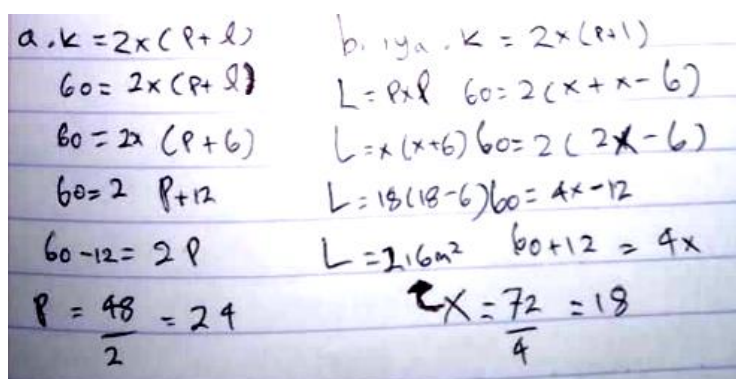 a. k = 2x (p + l)
60 = 2x (p + l)
60 = 2x (p + 6)
60 = 2 p + 12
60 - 12 = 2 p
p = 48/2 = 24
b. iya. k = 2x (p + l)
L = p x l 60 = 2 (x + x - 6)
L = x (x + 6) 60 = 2 (2x - 6)
L = 18 (18 - 6) 60 = 4x - 12
L = 216m² 60 + 12 = 4x
x = 72/4 = 18